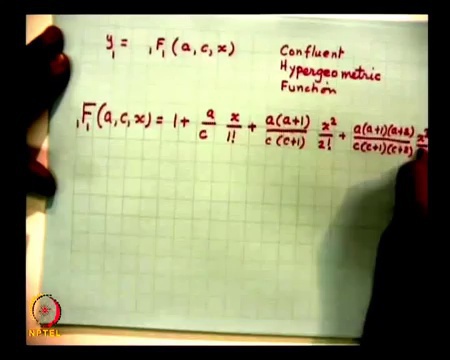 y₁ = ₁F₁ (a, c, x)
Confluent
Hypergeometric
Function
₁F₁ (a, c, x) = 1 + a/c x/1! + a(a+1)/c(c+1) x²/2! + a(a+1)(a+2)/c(c+1)(c+2)
NPTEL